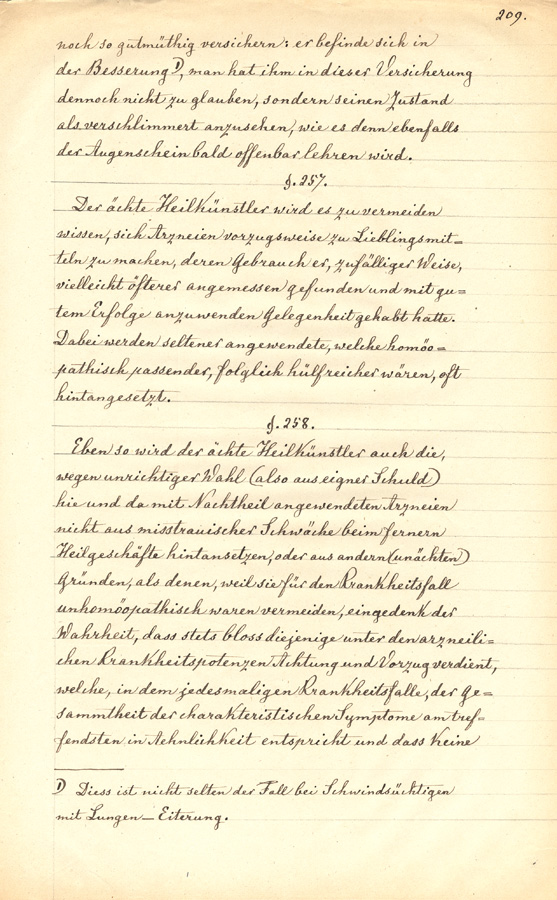 209.
noch so gutmüthig versichern: er befinde sich in
der Besserung 1), man hat ihm in dieser Versicherung
dennoch nicht zu glauben, sondern seinen Zustand
als verschlimmert anzusehen, wie es denn ebenfalls
der Augenschein bald offenbar lehren wird.
§. 257.
Der ächte Heilkünstler wird es zu vermeiden
wissen, sich Arzneien vorzugsweise zu Lieblingsmit=
teln zu machen, deren Gebrauch er, zufälliger Weise,
vielleicht öfterer angemessen gefunden und mit gu=
tem Erfolge anzuwenden Gelegenheit gehabt hatte.
Dabei werden seltener angewendete, welche homöo=
pathisch passender, folglich hülfreicher wären, oft
hintangesetzt.
§. 258.
Eben so wird der ächte Heilkünstler auch die,
wegen unrichtiger Wahl (also aus eigner Schuld)
hie und da mit Nachtheil angewendeten Arzneien
nicht aus misstrauischer Schwäche beim fernern
Heilgeschäfte hintansetzen, oder aus andern (unächten)
Gründen, als denen, weil sie für den Krankheitsfall
unhomöopathisch waren vermeiden, eingedenk der
Wahrheit, dass stets bloss diejenige unter den arzneili=
chen Krankheitspotenzen Achtung und Vorzug verdient,
welche, in dem jedesmaligen Krankheitsfalle, der Ge=
sammtheit der charakteristischen Symptome am tref=
fendsten in Aehnlichkeit entspricht und dass keine
1) Diess ist nicht selten der Fall bei Schwindsüchtigen
mit Lungen–Eiterung.